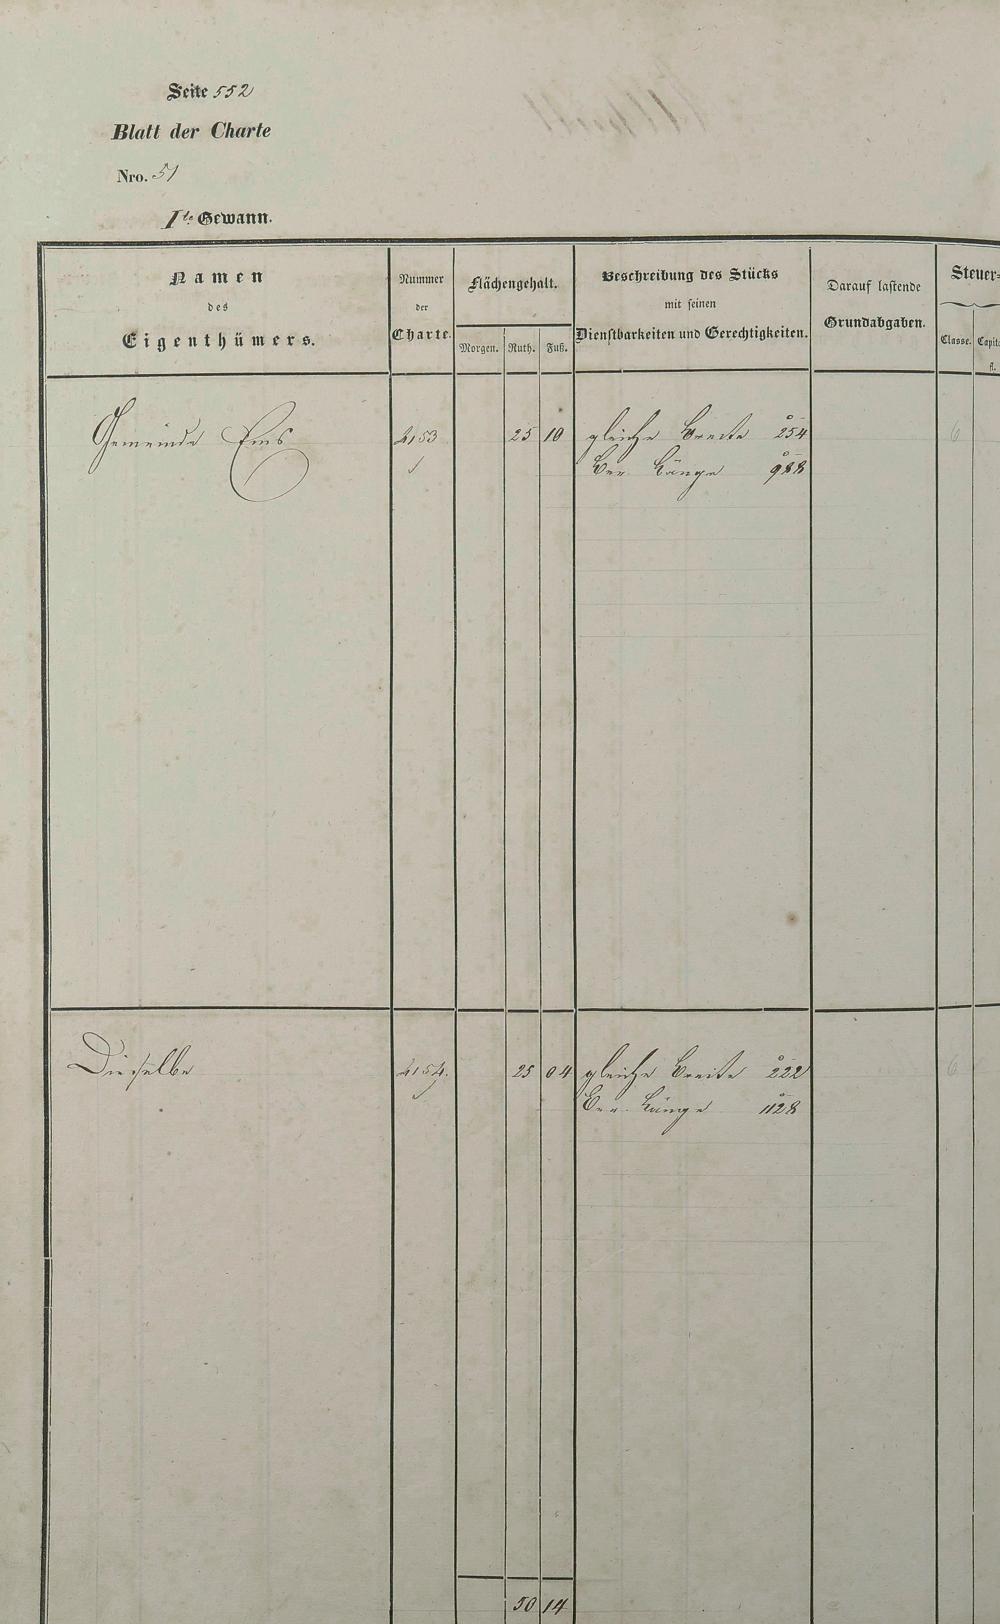 Seite 552
Blatt der Charte
Nro. 51
1te Gewann.
Namen
des
Eigenthümers.
Nummer
der
Charte.
Flächengehalt.
Morgen. Ruth. Fuß.
Beschreibung des Stücks
mit seinen
Dienstbarkeiten und Gerechtigkeiten.
Darauf lastende
Grundabgaben.
Steuer=
Classe. Capit
fl.
Gemeinde Ems 4153 25 10 gleiche Breite 254 6
Ber. Länge 988
Dieselbe 4154. 25 04 gleiche Breite 222 6
Ber. Länge 1128
50 14